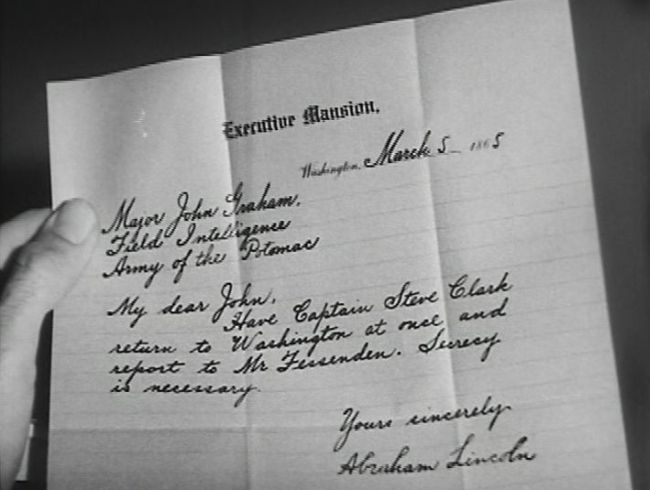 Executive Mansion,
Washington, March 5 1865
Major John Graham,
Field Intelligence
Army of the Potomac
My dear John,
Have Captain Steve Clark
return to Washington at once and
report to Mr Fessenden. Secrecy
is necessary.
Yours sincerely
Abraham Lincoln